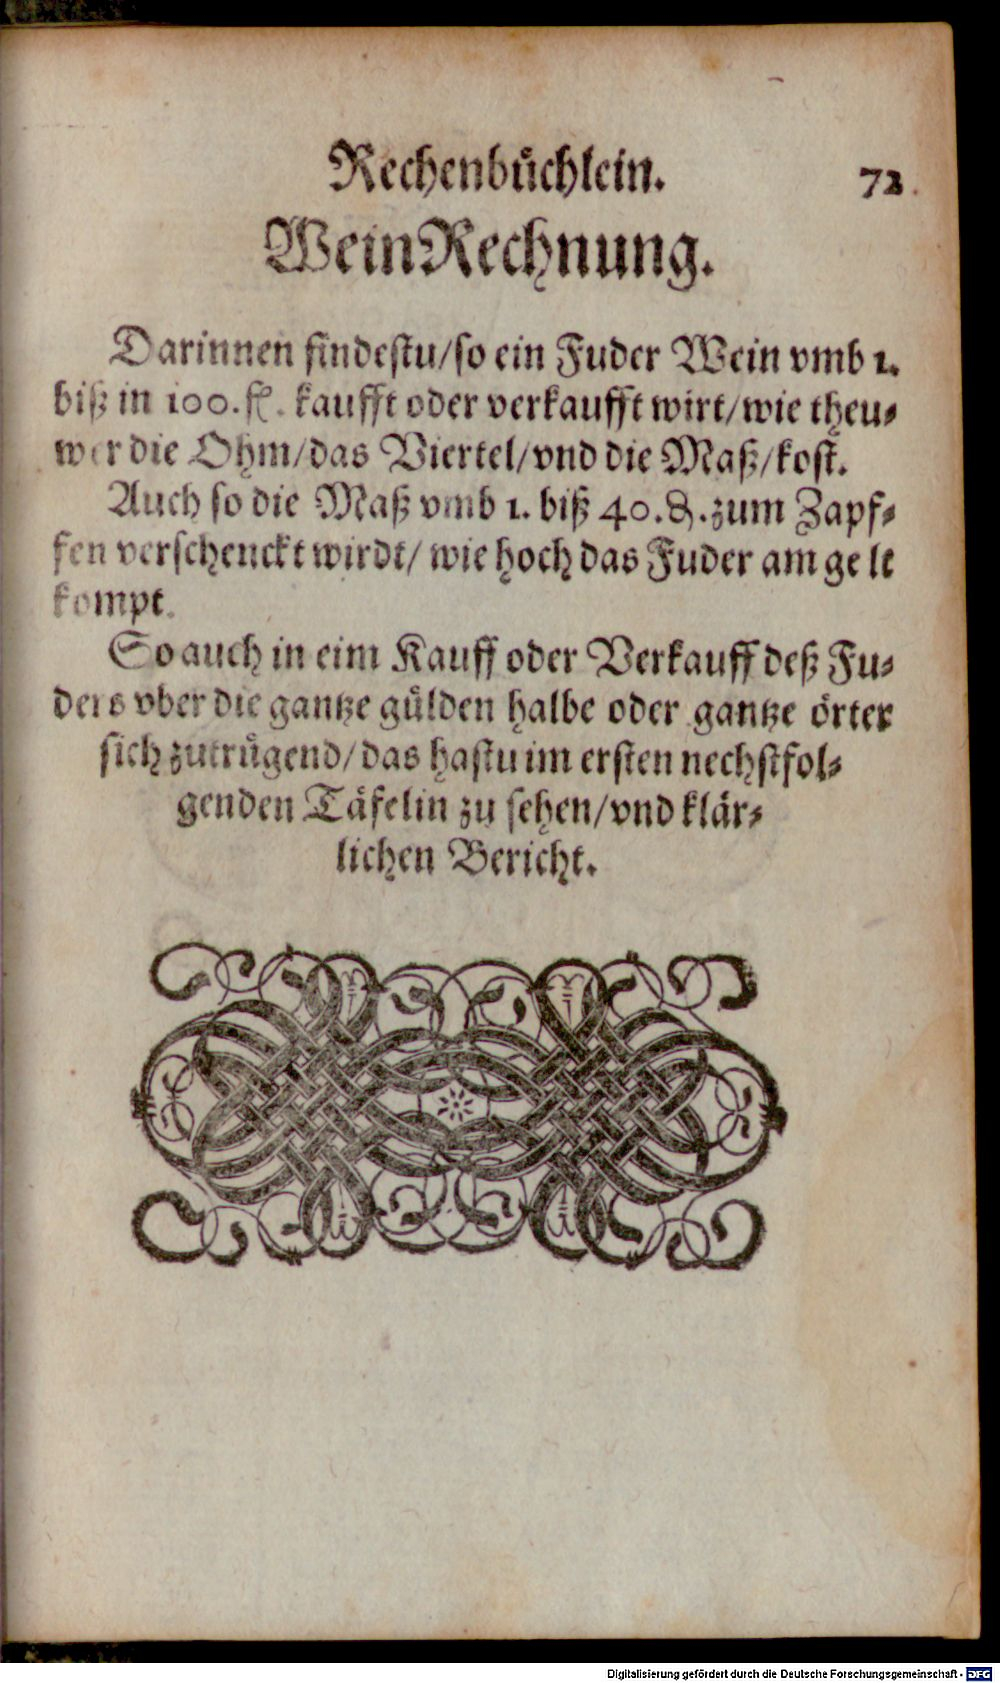 Rechenbůchlein. 72.
WeinRechnung.
Darinnen findestu/so ein Fuder Wein vmb 1.
biß in 100. fl. kaufft oder verkaufft wirt/wie theu⸗
wer die Ohm/das Viertel/vnd die Maß/kost.
Auch so die Maß vmb 1. biß 40. ₰. zum Zapf⸗
fen verschenckt wirdt/ wie hoch das Fuder am gelt
kompt.
So auch in eim Kauff oder Verkauff deß Fu⸗
ders vber die gantze gůlden halbe oder gantze örter
sich zutrůgend/das hastu im ersten nechstfol⸗
genden Täfelin zu sehen/vnd klär⸗
lichen Bericht.
Digitalisierung gefördert durch die Deutsche Forschungsgemeinschaft - DFG